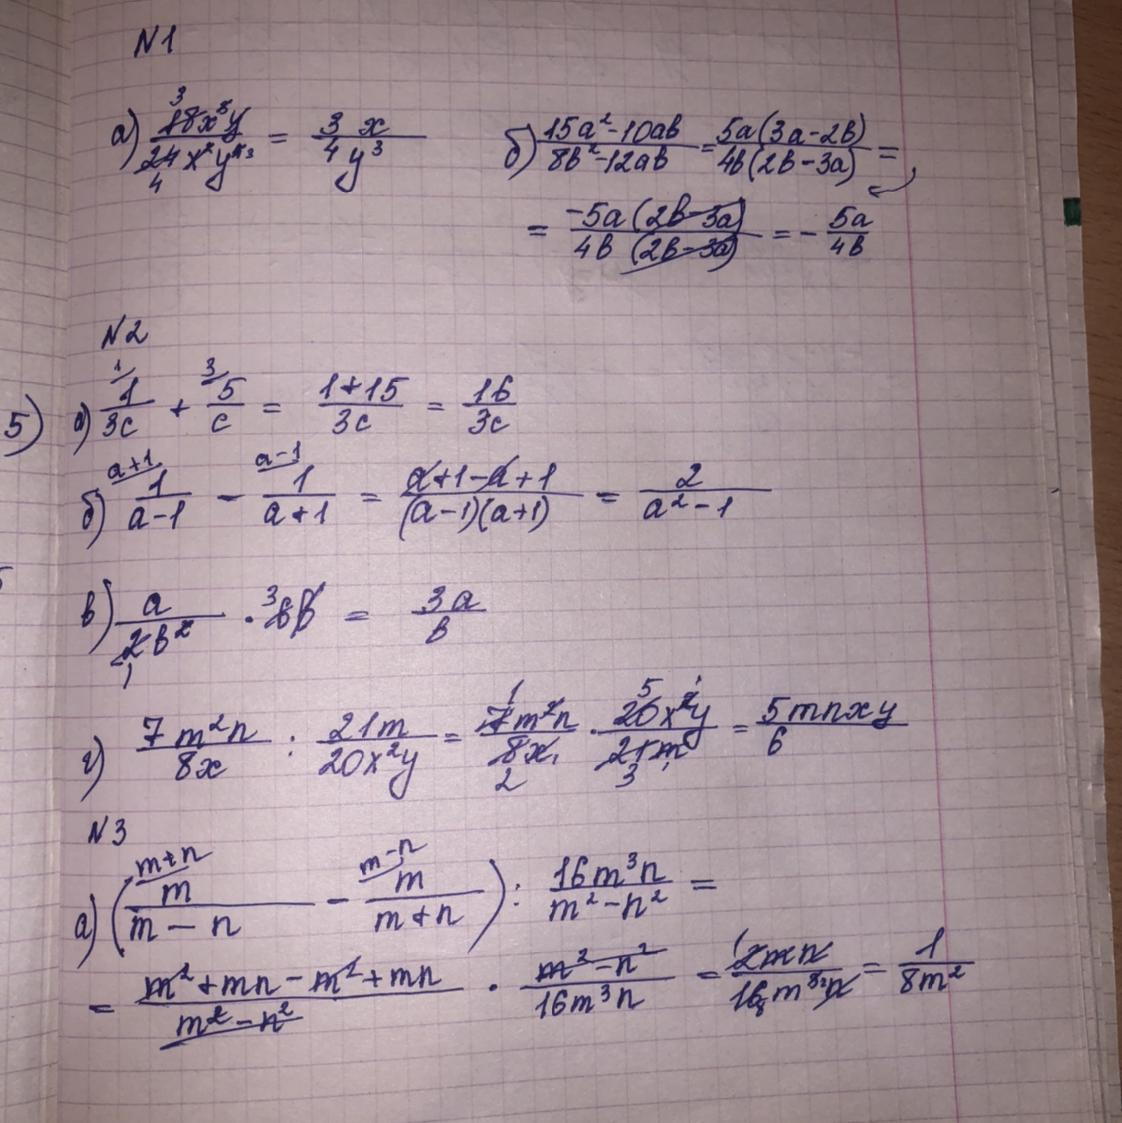 N1
а) 18x³y / 24x²y⁴ = 3x / 4y³
б) 15a² - 10ab / 8b² - 12ab = 5a(3a - 2b) / 4b(2b - 3a) =
= -5a(2b - 3a) / 4b(2b - 3a) = - 5a / 4b
N2
5)
а) 1/ 1 / 3c + 3/ 5 / c = 1 + 15 / 3c = 16 / 3c
б) a+1/ 1 / a - 1 - a-1/ 1 / a + 1 = a + 1 - a + 1 / (a - 1)(a + 1) = 2 / a² - 1
в) a / 2b² · 6b = 3a / b
г) 7m²n / 8x : 21m / 20x²y = 7m²n / 8x · 20x²y / 21m = 5mnxy / 6
N3
а) (m+n/ m / m - n - m-n/ m / m + n) : 16m³n / m² - n² =
= m² + mn - m² + mn / m² - n² · m² - n² / 16m³n = 2mn / 16m³n = 1 / 8m²